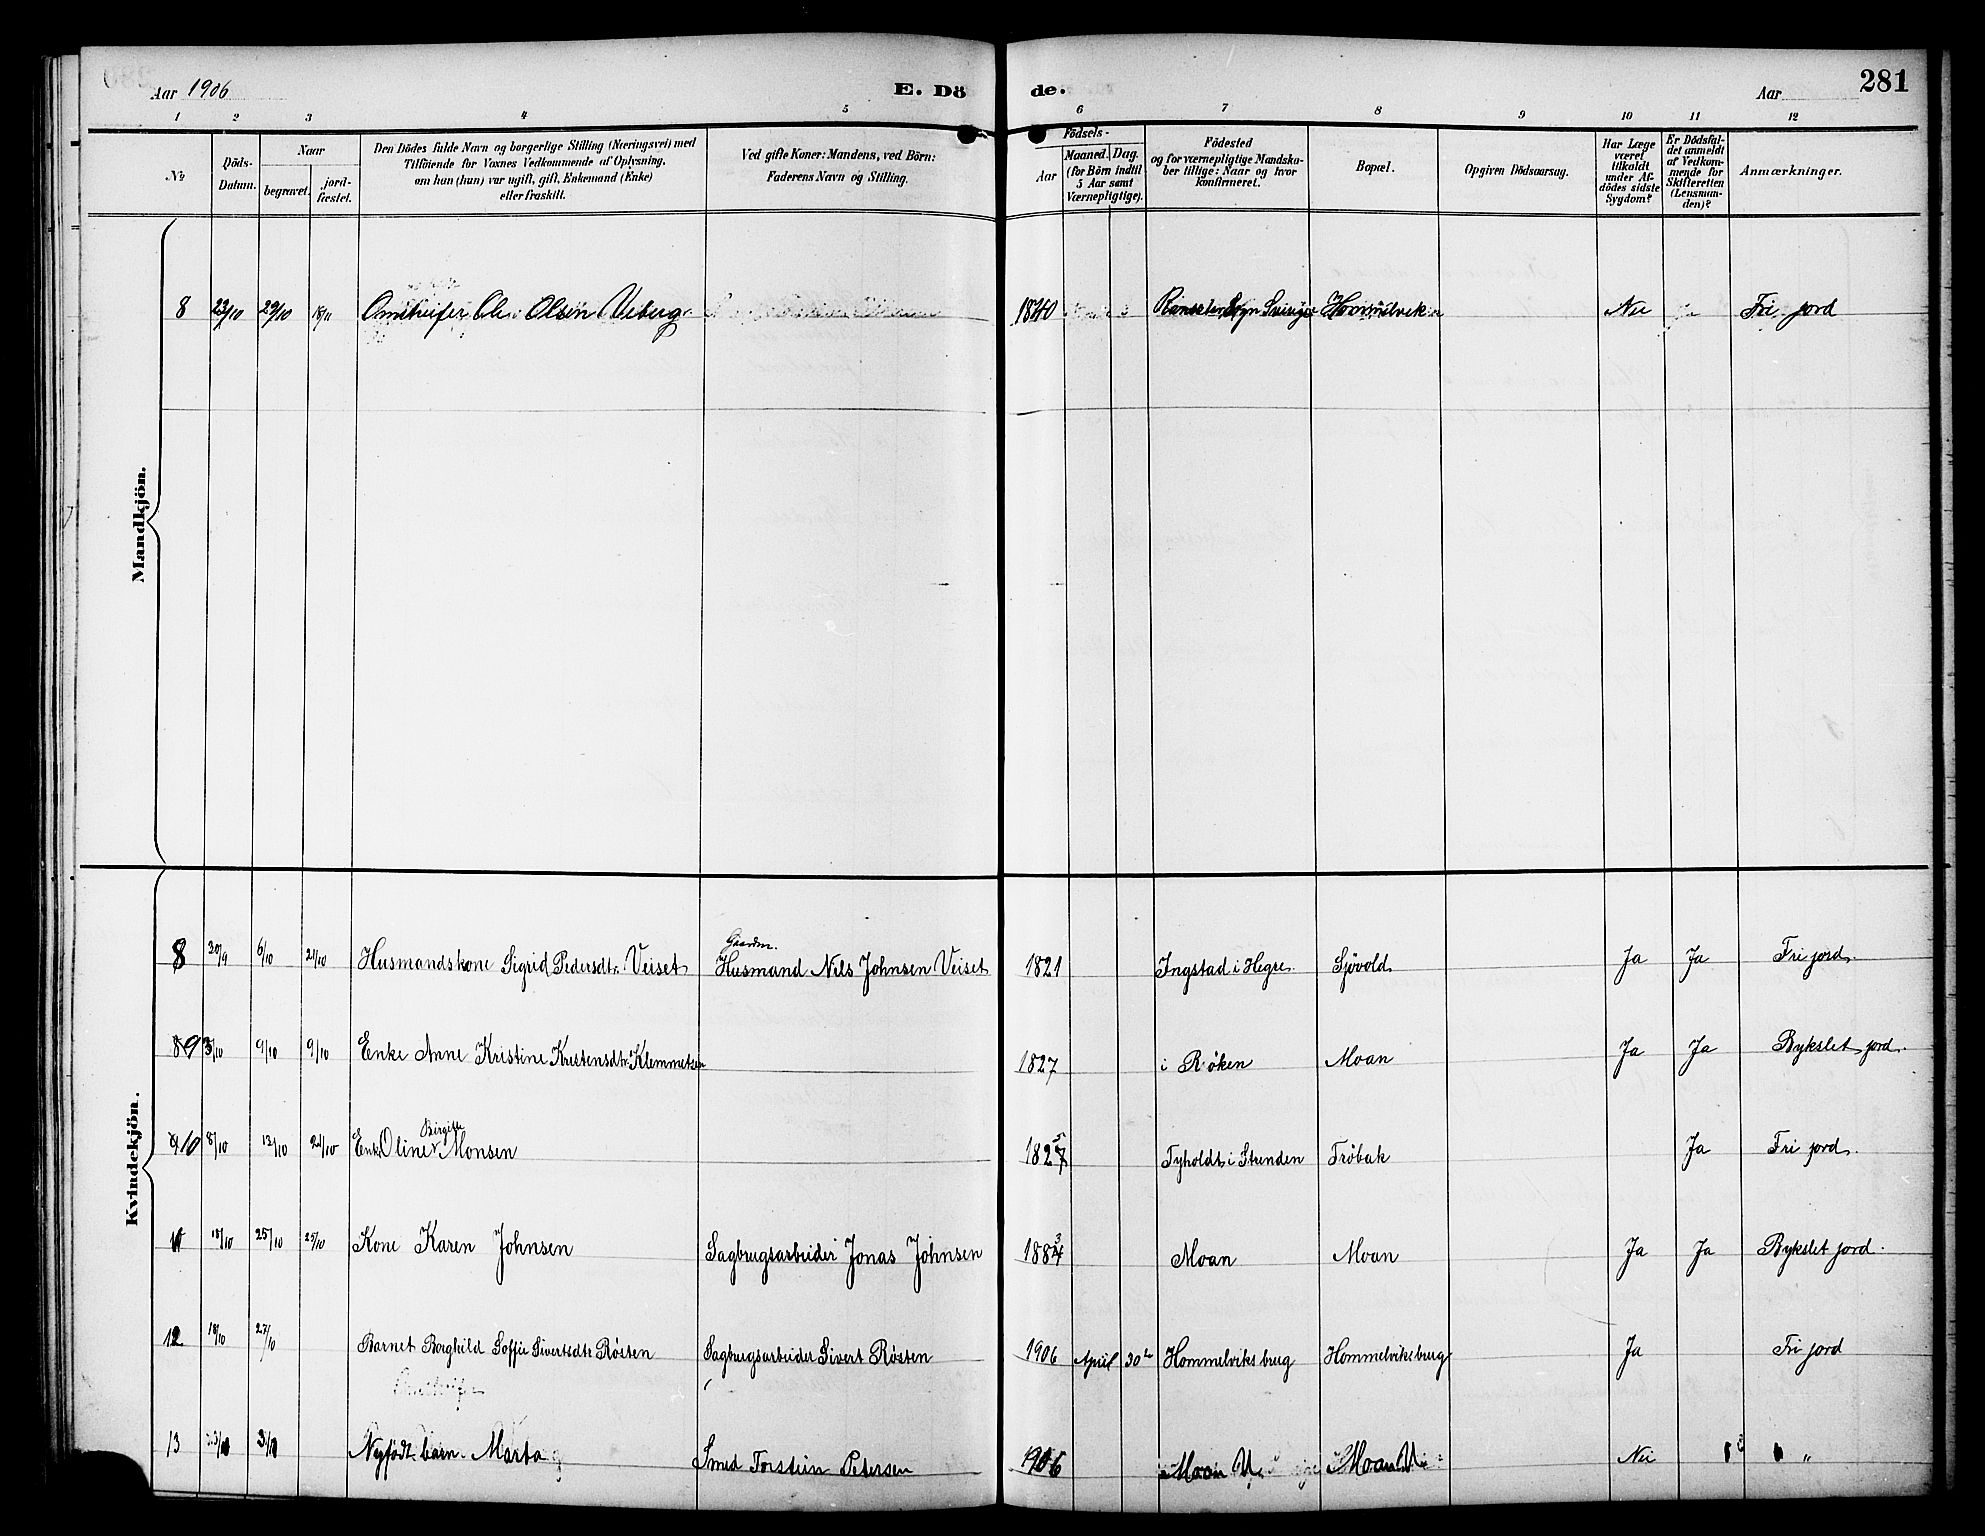 Aar 1906
E. Dö
de.
Aar
281
1 2 3 4 5 6 7 8 9 10 11 12
No
Döds-
Datum.
Naar
begravet.
jord-
fæstet.
Den Dödes fulde Navn og borgerlige Stilling (Næringsvei) med
Tilföiende for Voxnes Vedkommende af Oplysning,
om hun (han) var ugift, gift, Enkemand (Enke)
eller fraskilt.
Ved gifte Koner: Mandens, ved Börn:
Faderens Navn og Stilling.
Födsels-
Aar
Maaned. Dag.
(for Börn indtil
5 Aar samt
Værnepligtige).
Födested
og for værnepligtige Mandska-
ber tillige: Naar og hvor
konfirmeret.
Bopæl.
Opgiven Dödsaarsag.
Har Læge
været
tilkaldt
under Af-
dödes sidste
Sygdom?
Er Dödsfal-
det anmeldt
af Vedkom-
mende for
Skifteretten
(Lensman-
den)?
Anmærkninger.
Mandkjön.
8 23/10 29/10 18/11 Omstreifer Ole Olsen Viberg 1840 Sogn Sverige Hommelviken Nei Fri jord
Kvindekjön.
8 30/9 6/10 21/10 Husmandskone Sigrid Pedersdtr. Veiset Gaardm. Husmand Nils Johnsen Veiset 1821 Ingstad i Hegre Sjövold Ja Ja Fri jord.
9 3/10 9/10 9/10 Enke Anne Kristine Kristensdtr. Klemmetsen 1827 i Røken Moan Ja Ja Bykslet jord.
10 8/10 13/10 21/10 Enke Oline Birgitte Monsen 1825 Tyholdt i Strinden Trøbak Ja Fri jord.
11 18/10 25/10 25/10 Kone Karen Johnsen Sagbrugsarbeider Jonas Johnsen 1883 Moan Moan Ja Ja Bykslet jord.
12 18/10 27/10 Barnet Borghild Soffie Sivertsdtr Røsten Sagbrugsarbeider Sivert Røsten 1906 April 30te Hommelviks brug Hommelviks brug Ja Fri jord
Omstreifer
13 3/11 Nyfødt barn Marta Smed Torstein Petersen 1906 Moan Moan Nei "